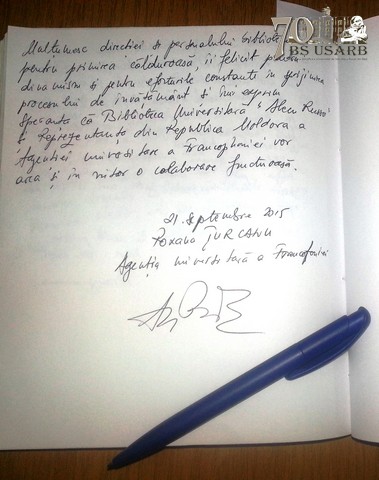 70
BS USARB
Mulţumesc direcţiei şi personalului bibliotecii
pentru primirea călduroasă, îi felicit pentru
dinamism şi pentru eforturile constante în sprijinirea
procesului de învăţământ şi îmi exprim
speranţa că Biblioteca Universitară "Alecu Russo"
şi Reprezentanţa din Republica Moldova a
Agenţiei universitare a Francophoniei vor
avea şi în viitor o colaborare fructuoasă.
21 septembrie 2015
Roxana ŢURCANU
Agenţia universitară a Francofoniei